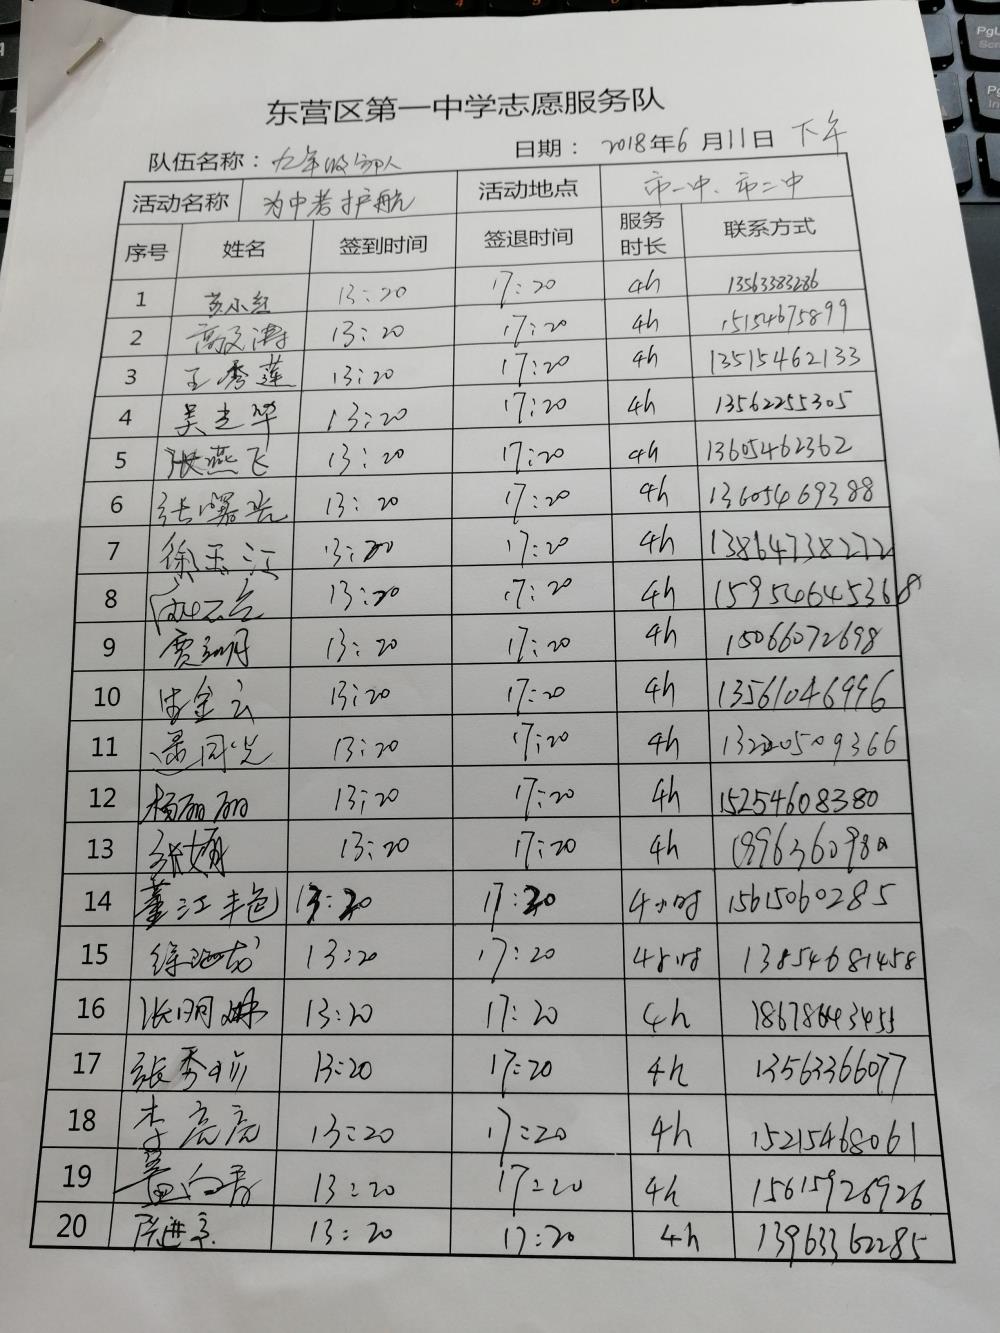 东营区第一中学志愿服务队
队伍名称：九年级部 日期：2018年6月11日下午
活动名称 为中考护航 活动地点 市一中、市二中
序号 姓名 签到时间 签退时间 服务时长 联系方式
1 13:20 17:20 4h 13563383286
2 13:20 17:20 4h 15154675899
3 王秀莲 13:20 17:20 4h 13515462133
4 13:20 17:20 4h 13562255305
5 张燕飞 13:20 17:20 4h 13605462362
6 13:20 17:20 4h 13605469388
7 徐玉江 13:20 17:20 4h 13864738272
8 13:20 17:20 4h
9 13:20 17:20 4h 15066072698
10 13:20 17:20 4h 13561046996
11 13:20 17:20 4h
12 杨丽丽 13:20 17:20 4h 15254608380
13 13:20 17:20 4h
14 董江艳 13:20 17:20 4小时 15615060285
15 13:20 17:20 4小时 13854681458
16 张明 13:20 17:20 4h 18678643455
17 张秀 13:20 17:20 4h 13563366077
18 李亮亮 13:20 17:20 4h 15215468061
19 13:20 17:20 4h 15615926926
20 13:20 17:20 4h 13963362285